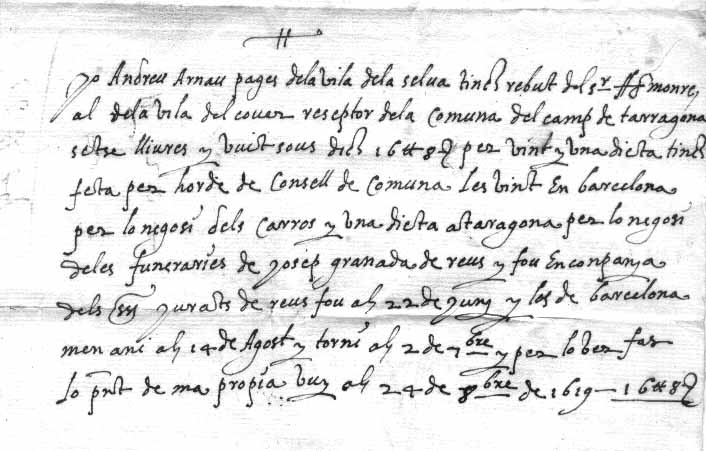 Jo Andreu Arnau pages dela vila dela selva tinch rebut del sr ff monrey
al dela vila del cover reseptor dela comuna del camp de tarragona
setse lliures y vuit sous dich 16 ll 8 s per vint y una dieta tinch
feta per horde de Consell de Comuna les vint En barcelona
per lo negosi dels Carros y una dieta a taragona per lo negosi
deles funeraries de Josep granada de reus y fou En conpanja
dels SSrs Jurats de reus fou ah 22 de Juny y les de barcelona
men ani ah 14 de Agost y torni ah 2 de 7bre y per lo ver fas
lo pnt de ma propia vuy ah 24 de 8bre de 1619 — 16 ll 8 s